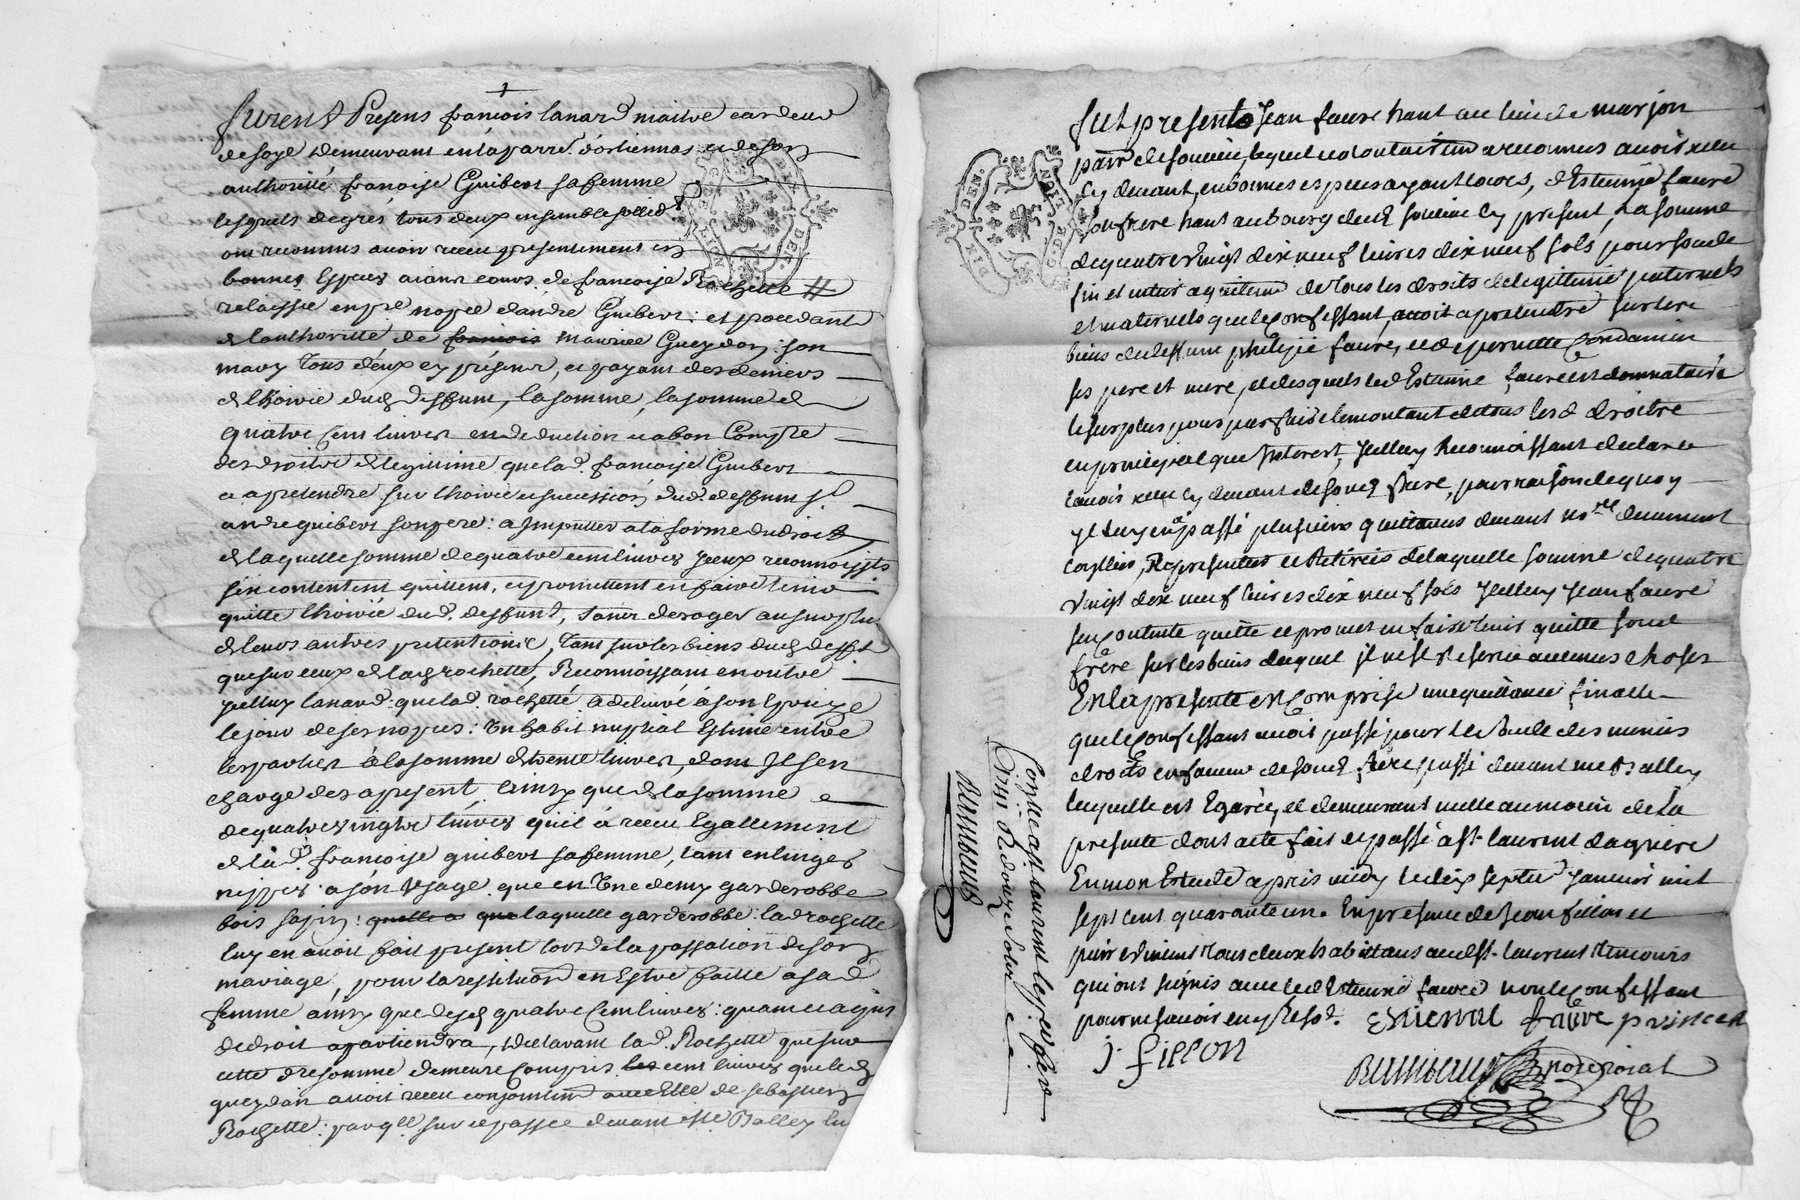 furent Presens françois lanard maitre cardeur
de soye demeurant en la parr. d'estiennas et de son
authorité françoise Guibert sa femme
lesquels de gres tous deux ensemble sollid.t
ont reconnus avoir receu presentement en
bonnes Especes aiant cours de françoise Rochette #
relaissée en pre nopce d'andré Guibert: et procedante
de l'authorité de françois maurice Gueydan: son
mary tous deux cy présent, et payant des deniers
de l'hoirie dud deffunt, la somme, la somme de
quatre cent livres en deduction et a bon Compte
des droits de legitime que lad. françoise Guibert
a a pretendre sur l'hoirie et succession dud. deffunt sr
andre guibert son pere: a Imputter a la forme du droit
de laquelle somme de quatre cent livres yceux reconnoissts
s'en contentent quittent, et promettent en faire tenir
quitte l'hoirie dud. deffunt, sans deroger au surplus
de leurs autres pretentions, tant sur les biens dud defft
que sur ceux de lad rochette, Reconnoissant en outre
ycelluy lanard: que lad. rochette a delivré à son Epouze
le jour de ses nopces: Un habit nuptial Estimé entre
les parties à la somme de trente livres, dont Il s'en
charge des a present ainsy que de la somme
de quatre vingts livres qu'il a receu Egallement
de lad. françoise guibert sa femme, tant en linges
nippes a son Usage que en Une demy garderobbe
bois sapin: quelle a que laquelle garderobbe lad rochette
luy en avoit fait present lors de la passation de son
mariage, pour la restitution en Estre faitte a sad
femme ainsy que desd quatre Cent livres: quand et a qui
de droit apartiendra, declarant lad. Rochette que sur
cette dre somme demeure Compris les cent livres que led
gueydan avoit receu conjointem avec Elle de sebastien
Rochette: par qtt sur ce passée devant Me Balley
fut present Jean faure hant au lieu de marjon
parr de souci, lequel a reconnus avoir receu
cy devant, en bonnes especes ayant cours, d'Estienne faure
son frere hant au bourg dud cy present, La somme
de quatre Vingt dix neuf livres dix neuf sols pour solde
fin et entier de tous les droits de legitime paternels
et maternels que le Confessant, avoit a pretendre sur les
biens de deffunt philipe faure, et de pernette Condamin
ses pere et mere, et desquels led Estienne faure est donnataire
le surplus pour parfaire le montant de tous lesd droits
en principal que Interest, Icelluy Reconnoissant declare
l'avoir receu cy devant de soud frere, pour raison de quoy
Il luy en a passé plusieurs quittances devant nore deuement
Conllées, Representées et Retirées de laquelle somme de quatre
Vingt dix neuf livres dix neuf sols Icelluy Jean faure
s'en Contente quitte et promet en faire tenir quitte soud
frère sur les biens duquel il ne s'est reservé aucunes choses
En la presente est Comprise une quittance finalle
que le Confessant avoit passé pour le solde des mêmes
droits en faveur de soud frere passé devant me Balley
laquelle est Egarée, et demeurant nulle au moien de la
presente dont acte fait et passé a st. laurent
En mon Estude apres midy le dix sept janvier mil
sept cent quarante un. En presence de Jean fillon et
tous deux habittans aud st. laurent temoins
qui ont signés avec led Estienne faure non le Confessant
pour ne savoir enquis et req. Estienne faure
J. fillon
nore royal
Conllé a st laurent les
1741 R douze sols